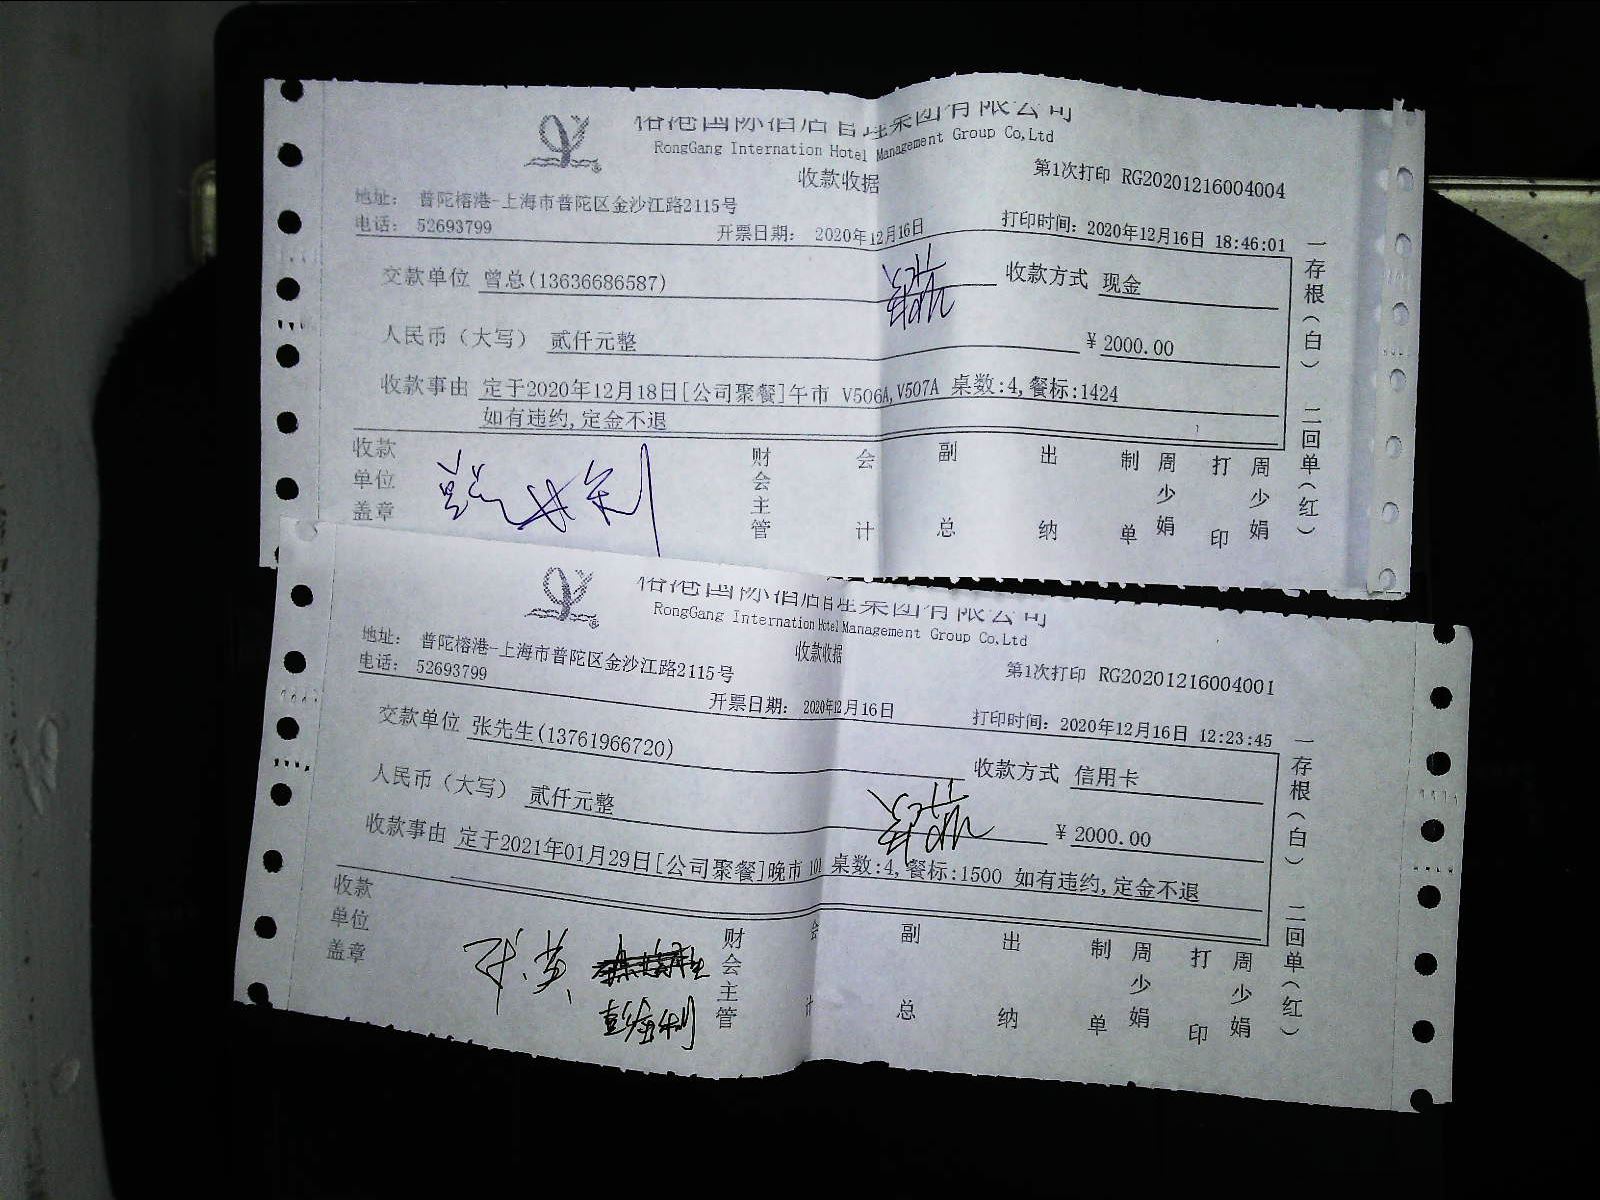 榕港国际酒店管理集团有限公司
RongGang Internation Hotel Management Group Co,Ltd
收款收据
第1次打印 RG20201216004004
地址： 普陀榕港-上海市普陀区金沙江路2115号
电话： 52693799
开票日期： 2020年12月16日
打印时间：2020年12月16日 18:46:01
交款单位 曾总(13636686587)
收款方式 现金
人民币（大写） 贰仟元整
¥ 2000.00
收款事由 定于2020年12月18日[公司聚餐]午市 V506A,V507A 桌数:4,餐标:1424
如有违约,定金不退
收款单位盖章
财会主管
会计
副总
出纳
制单
周少娟
打印
周少娟
一存根（白） 二回单（红）
榕港国际酒店管理集团有限公司
RongGang Internation Hotel Management Group Co,Ltd
收款收据
第1次打印 RG20201216004001
地址： 普陀榕港-上海市普陀区金沙江路2115号
电话： 52693799
开票日期： 2020年12月16日
打印时间：2020年12月16日 12:23:45
交款单位 张先生(13761966720)
收款方式 信用卡
人民币（大写） 贰仟元整
¥ 2000.00
收款事由 定于2021年01月29日[公司聚餐]晚市 101 桌数:4,餐标:1500 如有违约,定金不退
收款单位盖章
财会主管
会计
副总
出纳
制单
周少娟
打印
周少娟
一存根（白） 二回单（红）